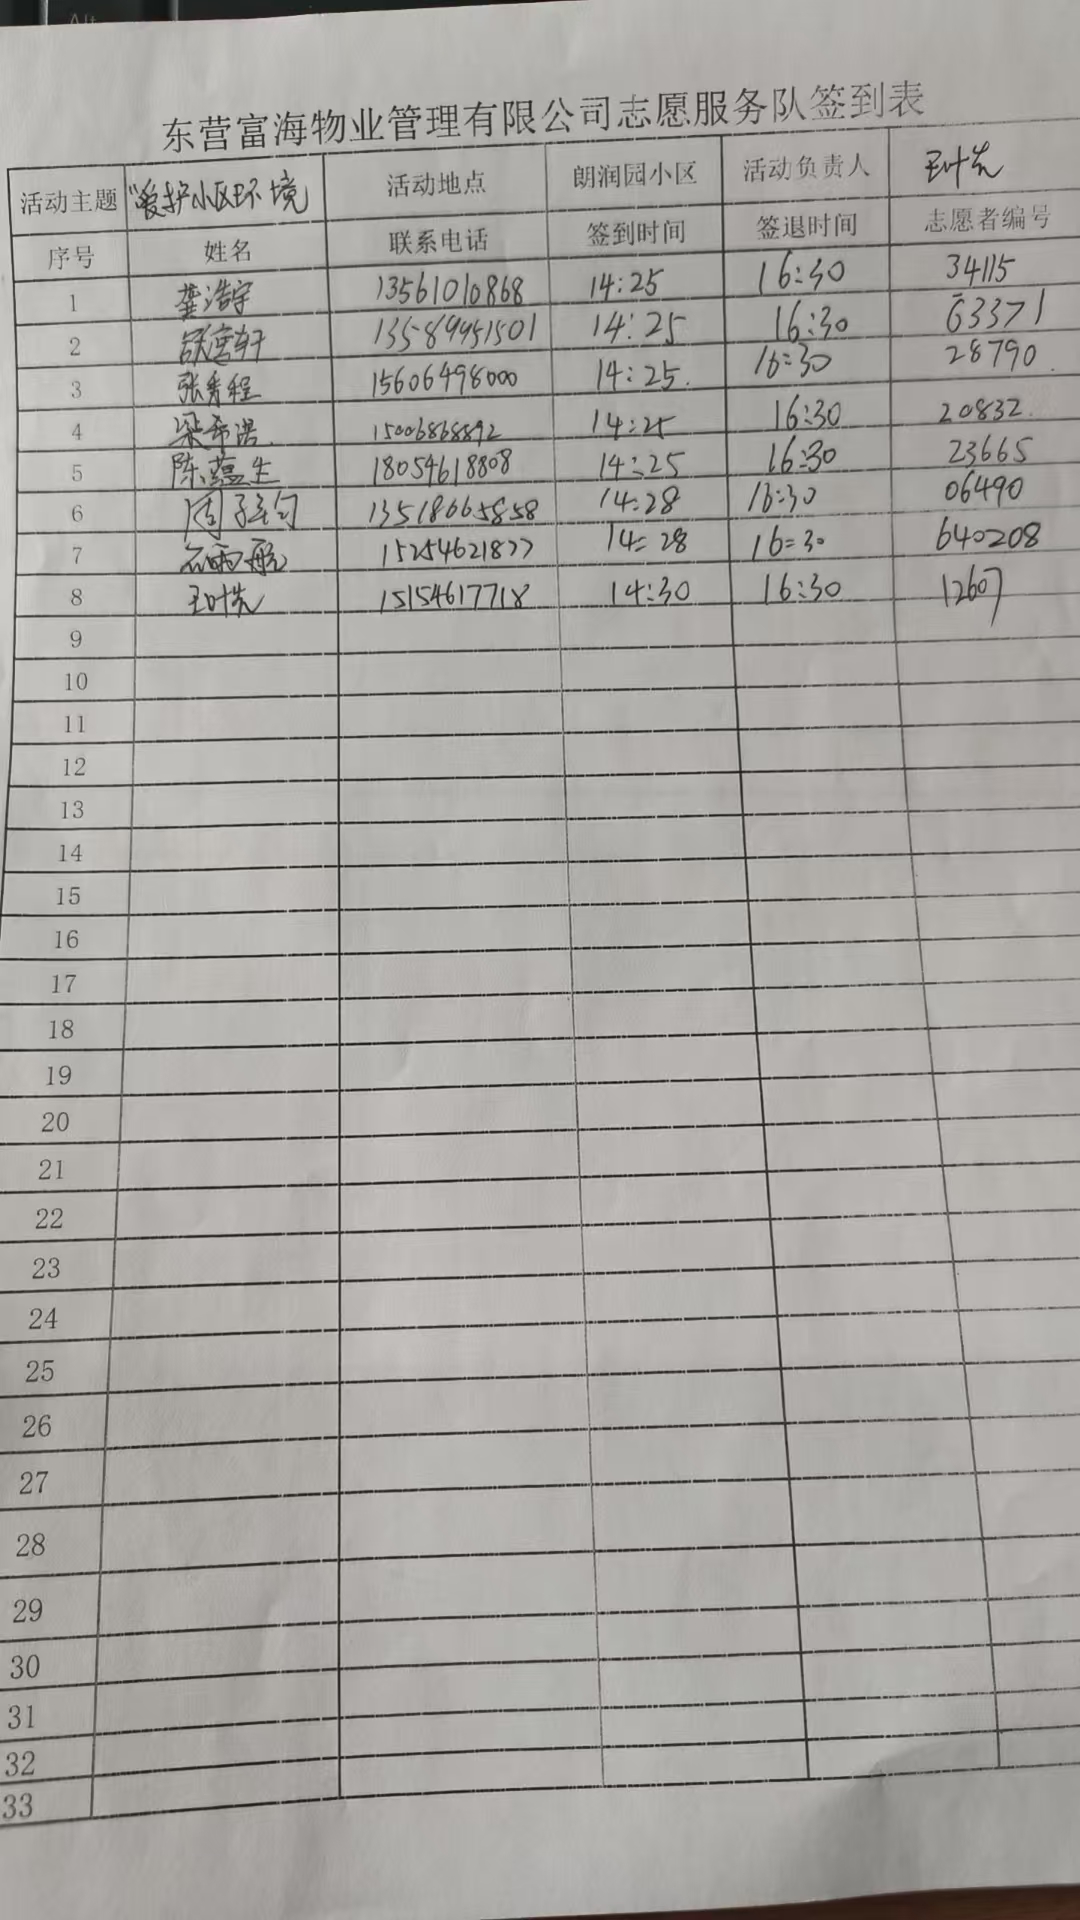 Alt
东营富海物业管理有限公司志愿服务队签到表
活动主题 "爱护小区环境 活动地点 朗润园小区 活动负责人 王叶先
序号 姓名 联系电话 签到时间 签退时间 志愿者编号
1 龚浩宇 13561010868 14:25 16:30 34115
2 14:25 16:30 63371
3 张秀程 15606498000 14:25. 16:30 28790.
4 梁希浩. 15006868892 14:25 16:30 20832.
5 陈蕴生 18054618808 14:25 16:30 23665
6 周子钧 14:28 16:30 06490
7 石雨航 15254621877 14:28 16:30 640208
8 王叶先 15154617718 14:30 16:30 12607
9
10
11
12
13
14
15
16
17
18
19
20
21
22
23
24
25
26
27
28
29
30
31
32
33